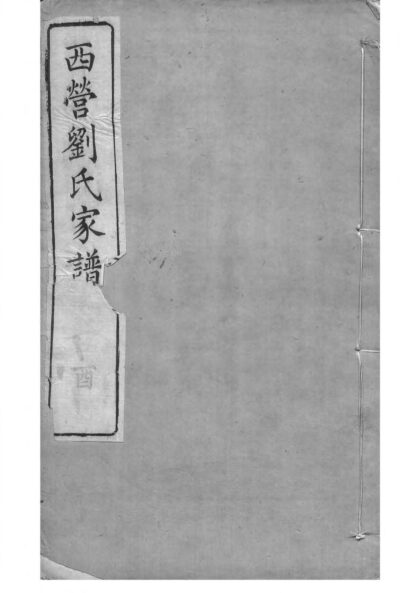 西營劉氏家譜
酉